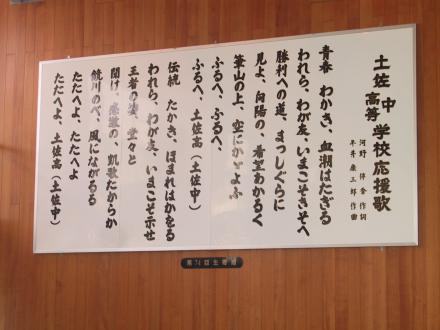 土佐 中 高等 学校応援歌
河野 伴香 作詞
平井 康三郎 作曲
青春 わかき、血潮はたぎる
われら、わが友、いまこそきそへ
勝利への道、まっしぐらに
見よ、向陽の、希望あかるく
筆山の上、空にかどよふ
ふるへ、ふるへ、
ふるへ、土佐高（土佐中）
伝統 たかき、ほまれはかをる
われら、わが友、いまこそ示せ
王者の姿、堂々と
聞け、感激の、凱歌たからか
鏡川のべ、風にながるる
たたへよ、たたへよ
たたへよ、土佐高（土佐中）
第74回生寄贈